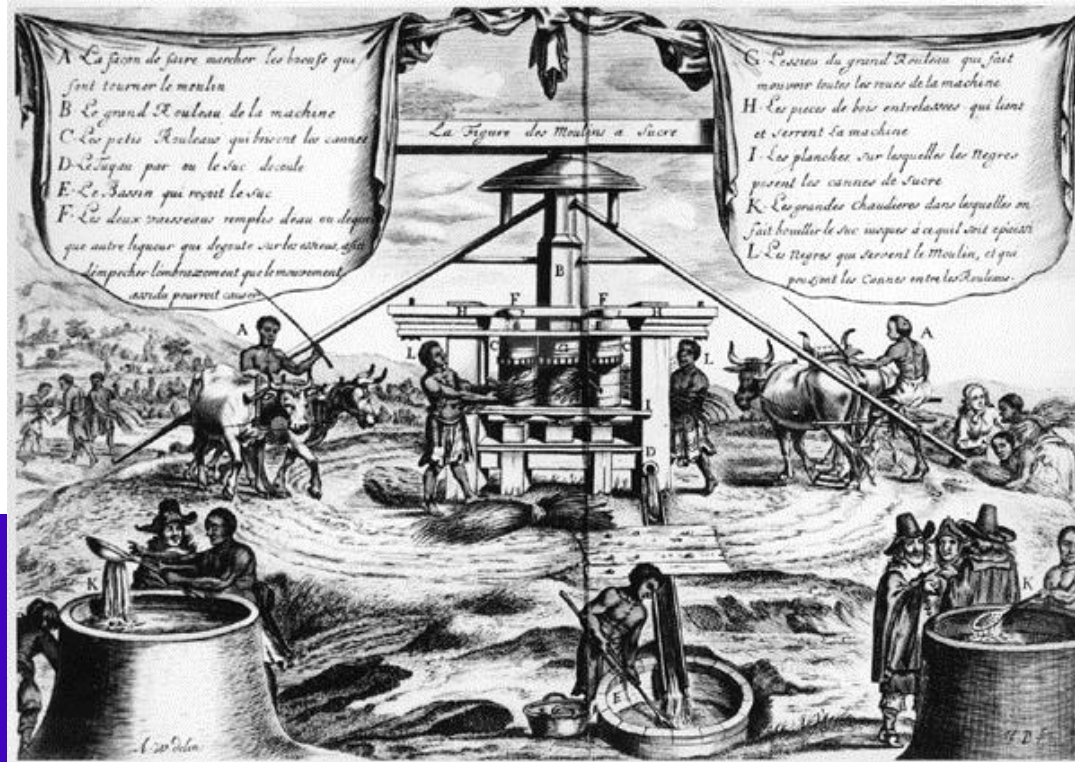 A La façon de faire marcher les bœufs qui
font tourner le moulin
B Le grand Rouleau de la machine
C Les petis Rouleaus qui brisent les cannes
D Le Tuyau par ou le suc decoule
E Le Bassin qui reçoit le suc
F Les deux vaisseaus remplis d'eau ou de quel
que autre liqueur qui degoute sur les essieus, afin
d'empecher l'embrazement que le mouvement
assidu pourroit causer
La Figure des Moulins a Sucre
G Lessieu du grand Rouleau qui fait
mouvoir toutes les roues de la machine
H Les pieces de bois entrelassees qui lient
et serrent la machine
I Les planches sur lesquelles les Negres
posent les cannes de sucre
K Les grandes Chaudieres dans lesquelles on
fait bouillir le suc iusques à ce quil soit epaissi
L Les Negres qui servent le Moulin, et qui
poussent les Cannes entre les Rouleaus.
B
F F
H H
A L C G C L A
I
D
K K
E
A. W. delin